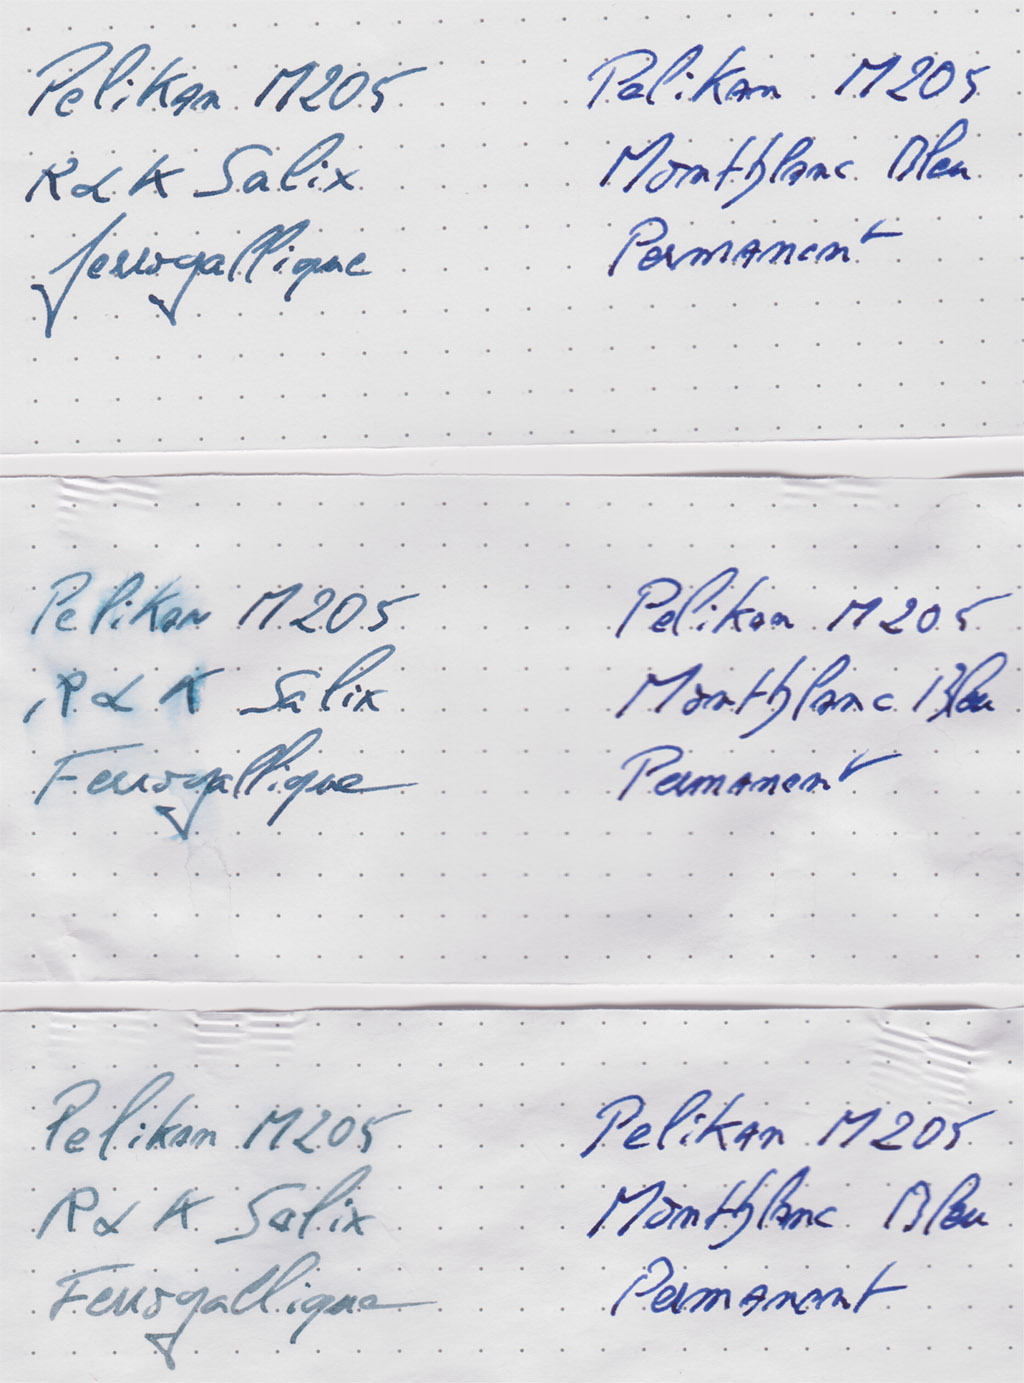 Pelikan M205
R & K Salix
ferrogallique
Pelikan M205
Montblanc Bleu
Permanent
Pelikan M205
R & K Salix
Ferrogallique
Pelikan M205
Montblanc Bleu
Permanent
Pelikan M205
R & K Salix
Ferrogallique
Pelikan M205
Montblanc Bleu
Permanent